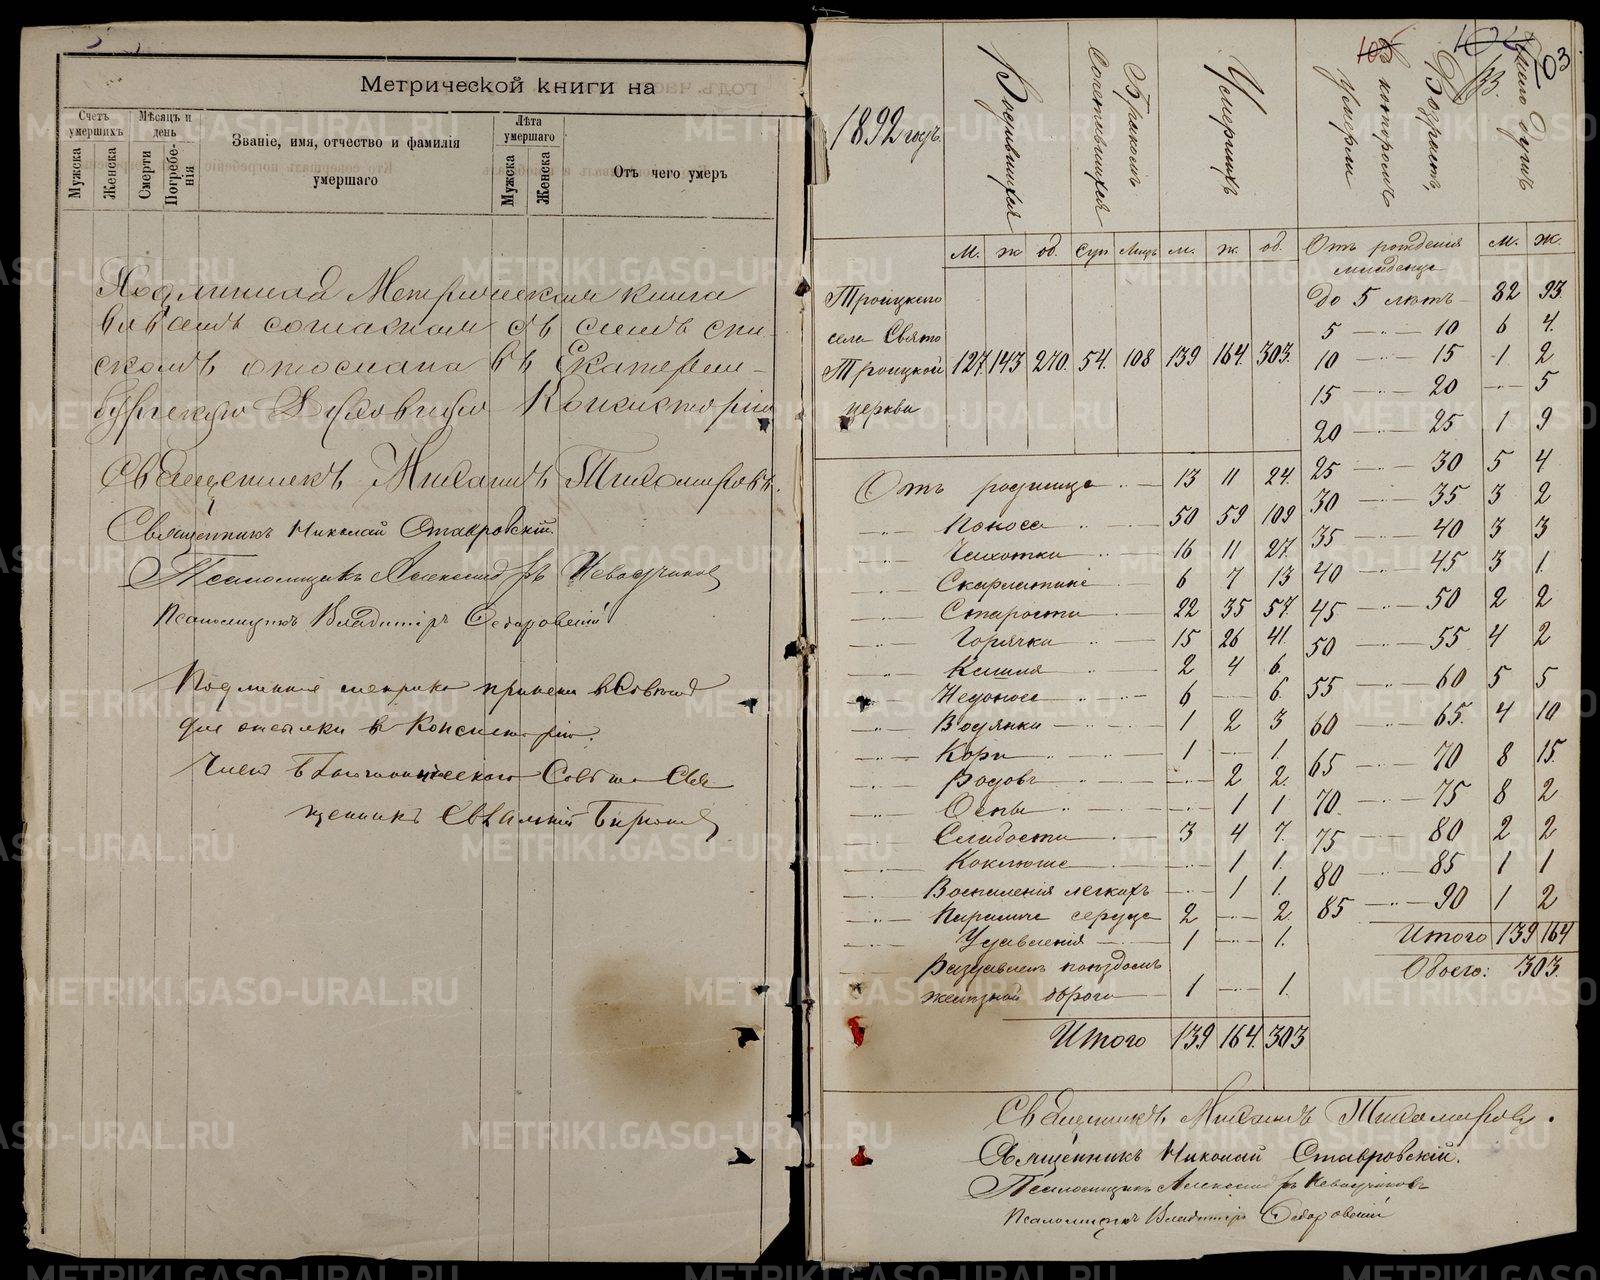 Метрической книги на
Счетъ умершихъ
Мужска
Женска
Мѣсяцъ и день
Смерти
Погребе-нія
Званіе, имя, отчество и фамилія
умершаго
Лѣта умершаго
Мужска
Женска
Отъ чего умеръ
Подлинная Метрическая книга
во всемъ согласная съ симъ спи-
скомъ отослана въ Екатерин-
бургскую Духовную Консисторію
Священникъ Михаилъ Тихомировъ.
Священникъ Николай Ставровскій.
Псаломщикъ Александръ
Псаломщикъ Владиміръ Ѳедоровскій
Подлинная метрика принята в Совет
для отсылки в Консисторію.
Членъ Благочинническаго Совета Свя
щенникъ Евгеній
1892 годъ.
Родившихся
Бракомъ Сочетавшихся
Умершихъ
Возрастъ, въ которомъ Умерли
Число душъ
103
М. Ж. об. Суп Лицъ М. Ж. об.
Отъ рожденія М. Ж.
младенцы
Троицкаго
села Свято
Троицкой
церкви
127 143 270. 54. 108 139 164. 303.
до 5 лѣтъ 82 93.
5 — 10 6 4.
10 — 15 1 2
15 — 20 — 5
20 — 25 1 9
25 — 30 5 4
30 — 35 3 2
35 — 40 3 3
40 — 45 3 1.
45 — 50 2 2
50 — 55 4 2
55 — 60 5 5
60 — 65. 4 10
65 — 70 8 15.
70. — 75 8 2
75 — 80 2 2
80 — 85 1 1
85 — 90 1 2
Итого 139 164
Обоего: 303.
Отъ родимца 13 11 24.
— Поноса 50 59 109
— Чахотки 16 11 27.
— Скарлатины 6 7 13
— Старости 22 35 57.
— Горячки 15 26 41.
— Кашля 2 4 6.
— Недоноса 6 — 6.
— Водянки 1 2 3
— Кори 1 — 1.
— Родовъ — 2 2.
— Оспы — 1 1.
— Слабости 3 4 7.
— Коклюша — 1 1.
— Воспаленія легкихъ — 1 1.
— Паралича сердца 2 — 2.
— Удавленія 1 — 1.
— Раздавленъ поѣздомъ
желѣзной дороги 1 — 1.
Итого 139 164. 303
Священникъ Михаилъ Тихомировъ.
Священникъ Николай Ставровскій.
Псаломщикъ Александръ
Псаломщикъ Владиміръ Ѳедоровскій
METRIKI.GASO-URAL.RU